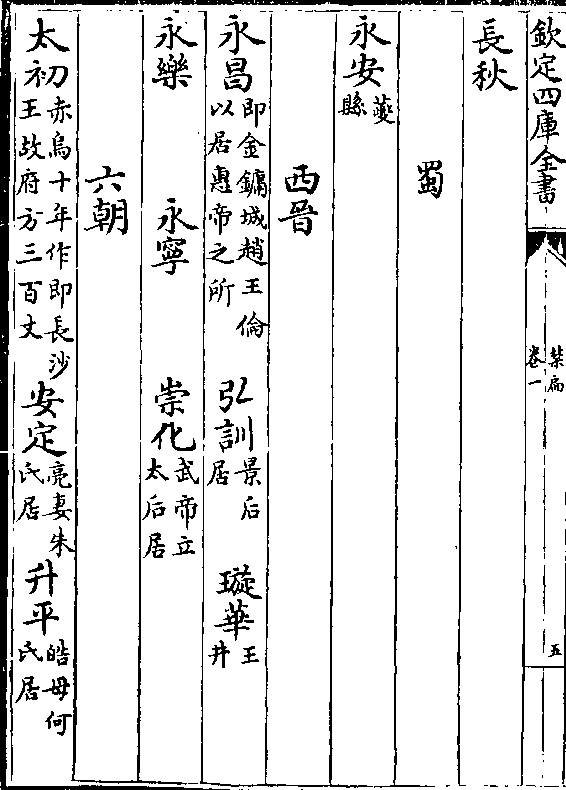 欽定四庫全書
禁扁
卷一
五
長秋
蜀
永安夔縣
西晉
永昌即金鏞城趙王倫以居惠帝之所 弘訓景后居 璇華王井
永樂 永寧 崇化武帝立太后居
六朝
太初赤烏十年作即長沙王故府方三百丈 安定亮妻朱氏居 升平皓母何氏居